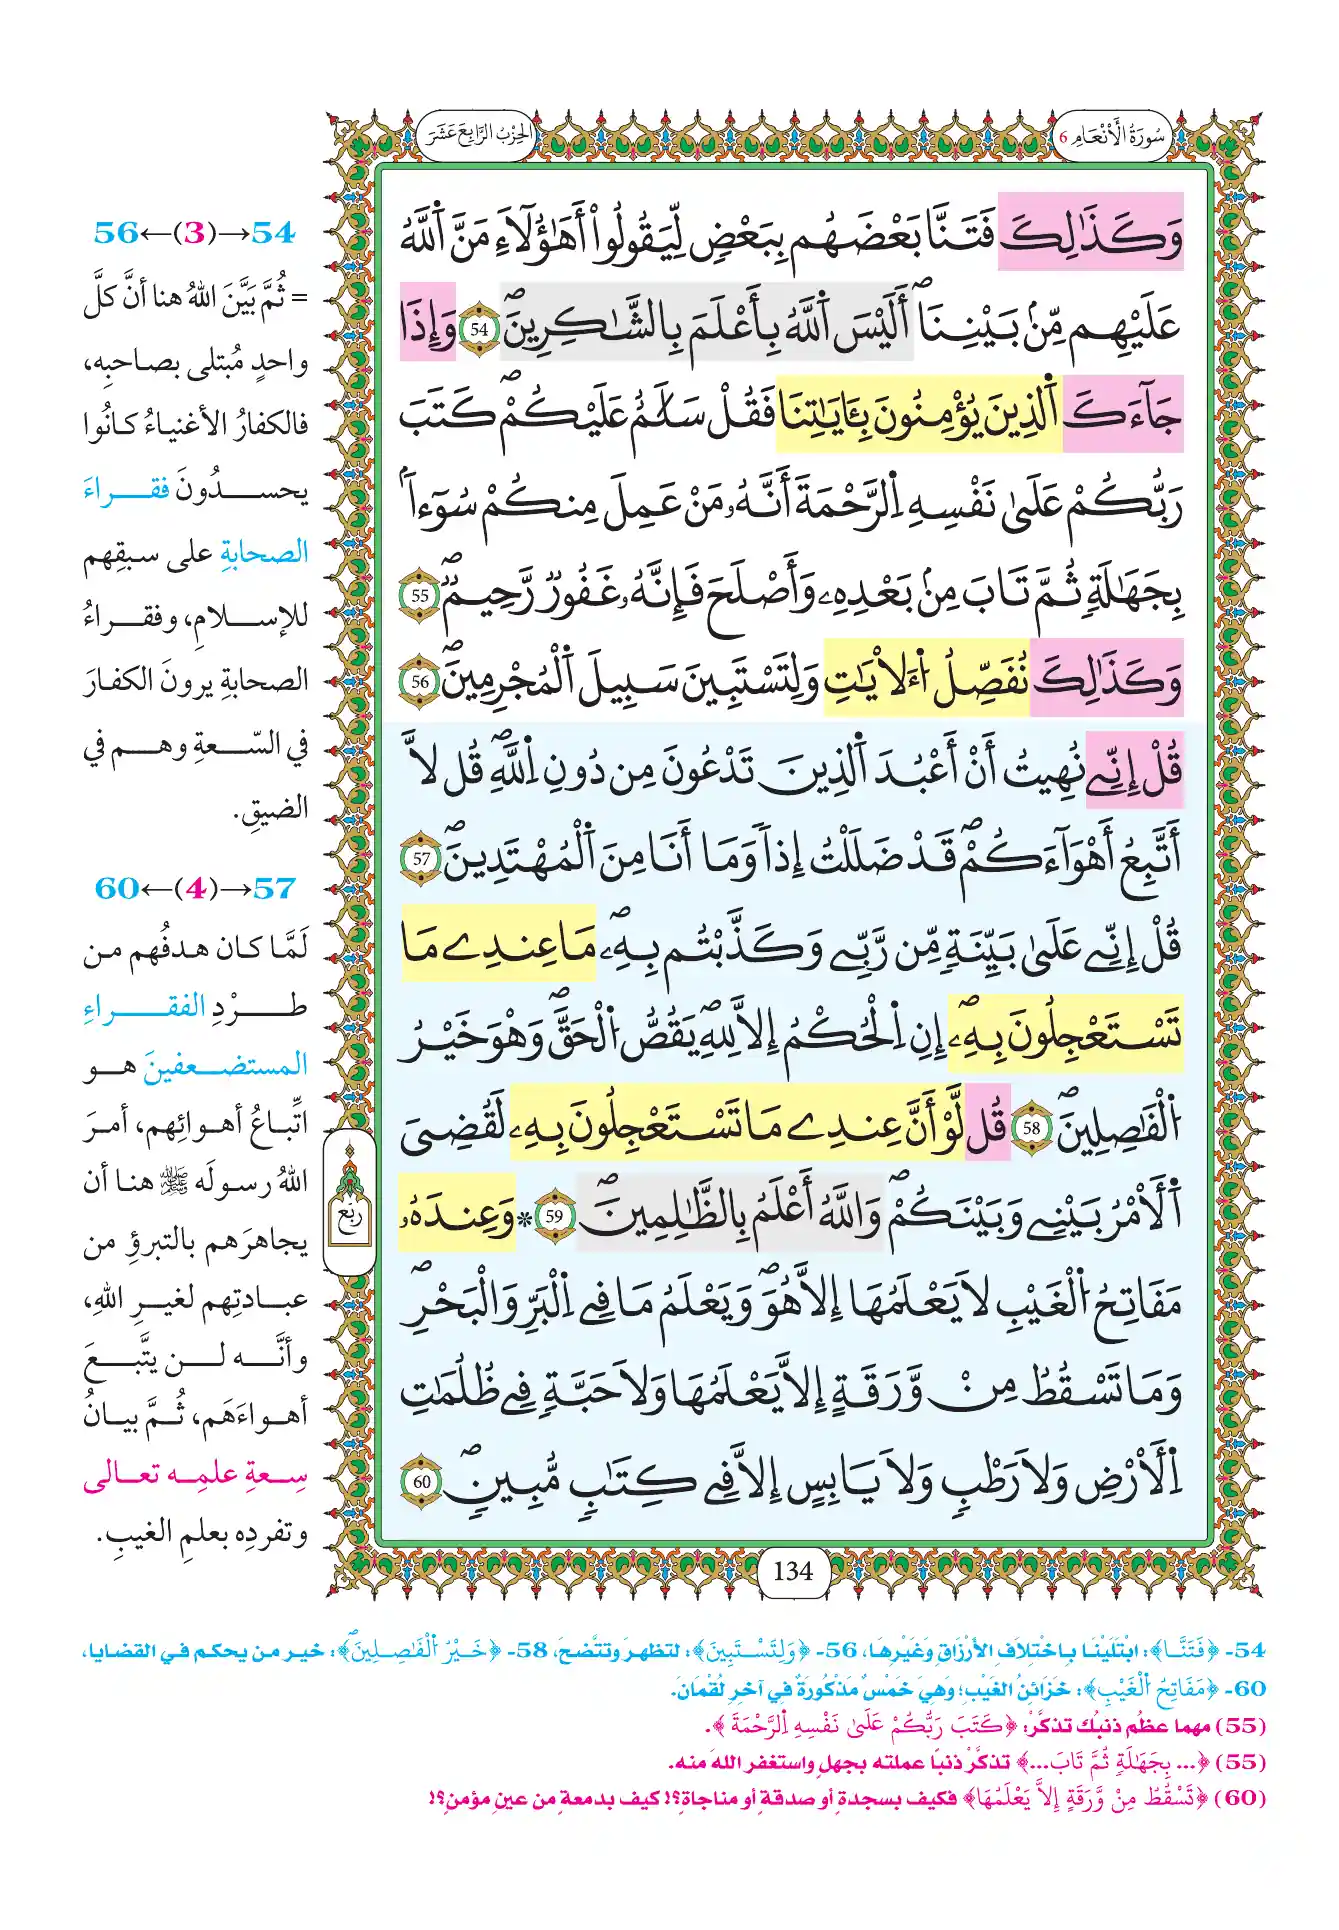 سُورَةُ الأَنْعَامِ 6
الحِزْبُ الرَّابِعَ عَشَرَ
وَكَذَٰلِكَ فَتَنَّا بَعْضَهُم بِبَعْضٖ لِّيَقُولُواْ أَهَٰٓؤُلَآءِ مَنَّ اَ۬للَّهُ
عَلَيْهِم مِّنۢ بَيْنِنَآۖ أَلَيْسَ اَ۬للَّهُ بِأَعْلَمَ بِالشَّٰكِرِينَۖ 54 وَإِذَا
جَآءَكَ اَ۬لذِينَ يُؤْمِنُونَ بِـَٔايَٰتِنَا فَقُلْ سَلَٰمٌ عَلَيْكُمْۖ كَتَبَ
رَبُّكُمْ عَلَىٰ نَفْسِهِ اِ۬لرَّحْمَةَ أَنَّهُۥ مَنْ عَمِلَ مِنكُمْ سُوٓءاَۢ
بِجَهَٰلَةٖ ثُمَّ تَابَ مِنۢ بَعْدِهِۦ وَأَصْلَحَ فَإِنَّهُۥ غَفُورٞ رَّحِيمٞۖ 55
وَكَذَٰلِكَ نُفَصِّلُ اُ۬لَأيَٰتِ وَلِتَسْتَبِينَ سَبِيلَ اَ۬لْمُجْرِمِينَۖ 56
قُلْ إِنِّے نُهِيتُ أَنْ أَعْبُدَ اَ۬لذِينَ تَدْعُونَ مِن دُونِ اِ۬للَّهِۖ قُل لَّآ
أَتَّبِعُ أَهْوَآءَكُمْۖ قَدْ ضَلَلْتُ إِذاٗ وَمَآ أَنَا مِنَ اَ۬لْمُهْتَدِينَۖ 57
قُلْ إِنِّے عَلَىٰ بَيِّنَةٖ مِّن رَّبِّے وَكَذَّبْتُم بِهِۦۖ مَا عِندِے مَا
تَسْتَعْجِلُونَ بِهِۦٓۖ إِنِ اِ۬لْحُكْمُ إِلَّا لِلهِۖ يَقُصُّ اُ۬لْحَقَّۖ وَهْوَ خَيْرُ
اُ۬لْفَٰصِلِينَۖ 58 قُل لَّوْ أَنَّ عِندِے مَا تَسْتَعْجِلُونَ بِهِۦ لَقُضِيَ
اَ۬لَامْرُ بَيْنِے وَبَيْنَكُمْۖ وَاللَّهُ أَعْلَمُ بِالظَّٰلِمِينَۖ 59 * وَعِندَهُۥ
مَفَاتِحُ اُ۬لْغَيْبِ لَا يَعْلَمُهَآ إِلَّا هُوَۖ وَيَعْلَمُ مَا فِے اِ۬لْبَرِّ وَالْبَحْرِۖ
وَمَا تَسْقُطُ مِنْ وَّرَقَةٍ إِلَّا يَعْلَمُهَا وَلَا حَبَّةٖ فِے ظُلُمَٰتِ
اِ۬لَارْضِ وَلَا رَطْبٖ وَلَا يَابِسٍ إِلَّا فِے كِتَٰبٖ مُّبِينٖۖ 60
ربع
134
54→(3)←56
= ثُمَّ بَيَّنَ اللهُ هنا أنَّ كلَّ
واحدٍ مُبتلى بصاحبِه،
فالكفارُ الأغنياءُ كانُوا
يحسدُونَ فقراءَ
الصحابةِ على سبقِهم
للإسلامِ، وفقراءُ
الصحابةِ يرونَ الكفارَ
في السّعةِ وهم في
الضيقِ.
57→(4)←60
لَمَّا كان هدفُهم من
طرْدِ الفقراءِ
المستضعفينَ هو
اتِّباعُ أهوائِهم، أمرَ
اللهُ رسولَه ﷺ هنا أن
يجاهرَهم بالتبرؤِ من
عبادتِهم لغيرِ اللهِ،
وأنَّه لن يتَّبعَ
أهواءَهَم، ثُمَّ بيانُ
سِعةِ علمِه تعالى
وتفردِه بعلمِ الغيبِ.
54- ﴿فَتَنَّا﴾: ابْتَلَيْنَا بِاخْتِلَافِ الأَرْزَاقِ وَغَيْرِهَا، 56- ﴿وَلِتَسْتَبِينَ﴾: لتظهرَ وتتَّضحَ، 58- ﴿خَيْرُ اُ۬لْفَٰصِلِينَۖ﴾: خير من يحكم في القضايا،
60- ﴿مَفَاتِحُ اُ۬لْغَيْبِ﴾: خَزَائِنُ الغَيْبِ؛ وَهِيَ خَمْسٌ مَذْكُورَةٌ فِي آخِرِ لُقْمَانَ.
(55) مهما عظُم ذنبُك تذكَّرْ: ﴿كَتَبَ رَبُّكُمْ عَلَىٰ نَفْسِهِ اِ۬لرَّحْمَةَ﴾.
(55) ﴿... بِجَهَٰلَةٖ ثُمَّ تَابَ...﴾ تذكَّرْ ذنبًا عملته بجهلٍ واستغفر اللهَ منه.
(60) ﴿تَسْقُطُ مِنْ وَّرَقَةٍ إِلَّا يَعْلَمُهَا﴾ فكيف بسجدةٍ أو صدقةٍ أو مناجاةٍ؟! كيف بدمعةٍ من عينِ مؤمنٍ؟!